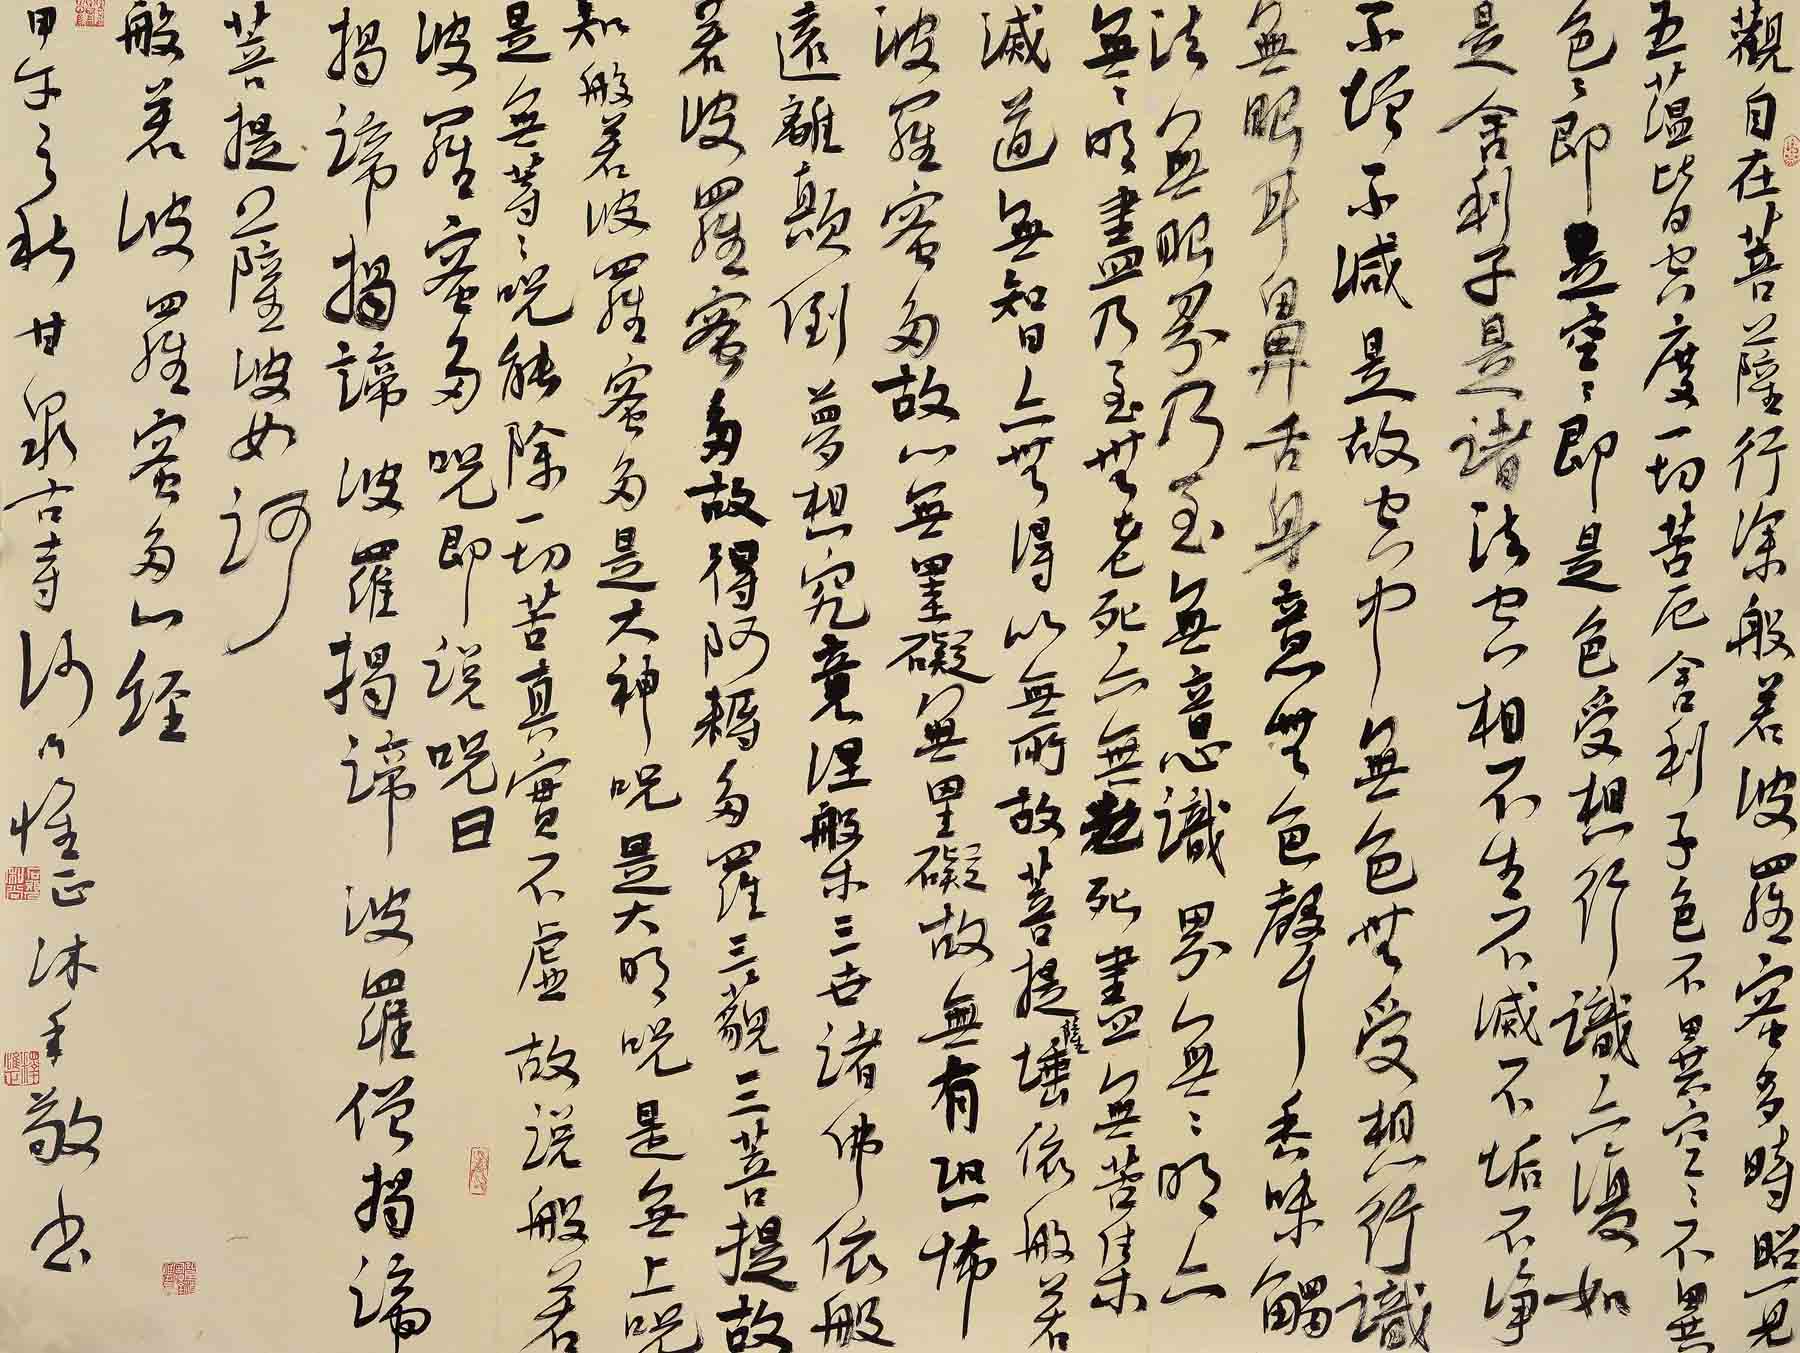 觀自在菩薩行深般若波羅蜜多時照見
五蘊皆空度一切苦厄舍利子色不異空々不異
色々即是空々即是色受想行識亦復如
是舍利子是諸法空相不生不滅不垢不淨
不增不減是故空中無色無受想行識
無眼耳鼻舌身意無色聲香味觸
法無眼界乃至無意識界無々明亦
無々明盡乃至無老死亦無老死盡無苦集
滅道無智亦無得以無所故菩提薩埵依般若
波羅蜜多故心無罣礙無罣礙故無有恐怖
遠離顛倒夢想究竟涅槃三世諸佛依般
若波羅蜜多故得阿耨多羅三藐三菩提故
知般若波羅蜜多是大神呪是大明呪是無上呪
是無等々呪能除一切苦真實不虛故説般若
波羅蜜多呪即説呪曰
揭諦揭諦波羅揭諦波羅僧揭諦
菩提薩婆訶
般若波羅蜜多心經
甲午之秋甘泉古寺沙門惟正沐手敬書